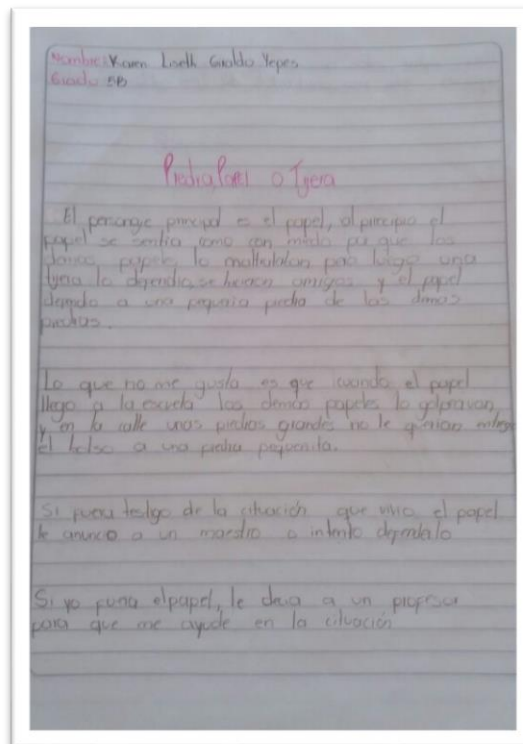 Nombre: Karen Liseth Giraldo Yepes
Grado 5B
Piedra Papel o Tijera
El personaje principal es el papel, al principio el
papel se sentia como con miedo por que los
demas papeles lo maltrataban pero luego una
tijera lo defendia, se hicieron amigos y el papel
defendio a una pequeña piedra de las demas
piedras.
Lo que no me gusta es que cuando el papel
llego a la escuela los demas papeles lo golpeavan,
y en la calle unas piedras grandes no le querian entregar
el bolso a una piedra pequeñita.
Si fuera testigo de la cituación que vivio el papel
le anuncio a un maestro o intento defenderlo
Si yo fuera el papel, le diria a un profesor
para que me ayude en la cituación